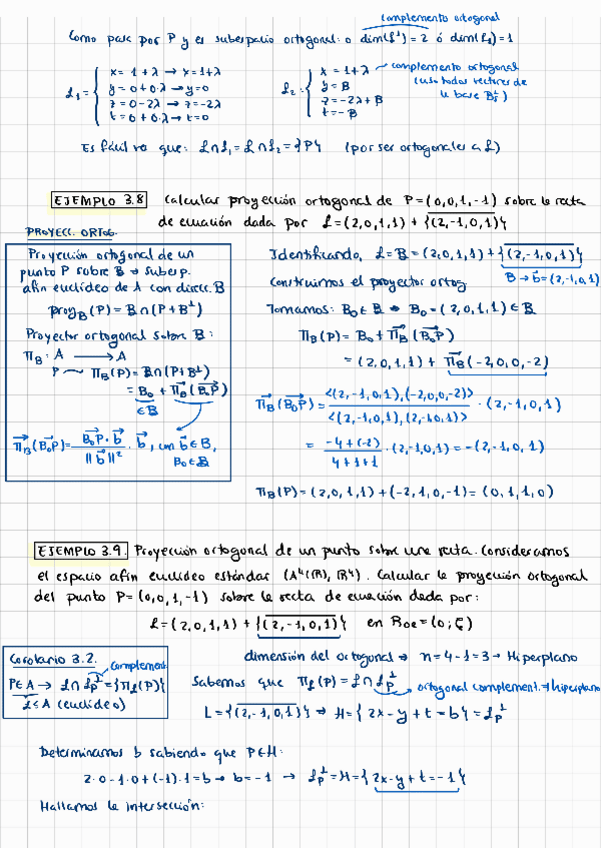 complemento ortogonal
Como pasa por P y es subespacio ortogonal: o dim(L^⊥) = 2 ó dim(L₁) = 1
L₁ = { x = 1+λ → x = 1+λ
y = 0+0·λ → y = 0
z = 0-2λ → z = -2λ
t = 0+0·λ → t = 0
L₂ : { x = 1+λ
y = B
z = -2λ+B
t = -B
complemento ortogonal
(uso todos vectores de
la base B)
Es fácil ver que: L∩L₁ = L∩L₂ = {P} (por ser ortogonales a L)
EJEMPLO 3.8 Calcular proyección ortogonal de P = (0,0,1,-1) sobre la recta
de ecuación dada por L = (2,0,1,1) + {(2,-1,0,1)}
PROYECC. ORTOG.
Proyección ortogonal de un
punto P sobre B → subesp.
afín euclídeo de A con direcc. B
proy_B(P) = B∩(P+B^⊥)
Proyector ortogonal sobre B:
π_B : A → A
P ~ π_B(P) = B∩(P+B^⊥)
= B₀ + π⃗_B(B₀P)
∈B
π⃗_B(B₀P) = B₀P · b⃗ / ||b⃗||² · b⃗, con b⃗ ∈ B,
B₀ ∈ B
Identificando, L = B = (2,0,1,1) + {(2,-1,0,1)}
B → b⃗ = (2,-1,0,1)
Construimos el proyector ortog
Tomamos: B₀ ∈ B → B₀ = (2,0,1,1) ∈ B
π_B(P) = B₀ + π⃗_B(B₀P)
= (2,0,1,1) + π⃗_B(-2,0,0,-2)
π⃗_B(B₀P) = <(2,-1,0,1),(-2,0,0,-2)> / <(2,-1,0,1),(2,-1,0,1)> · (2,-1,0,1)
= -4+(-2) / 4+1+1 · (2,-1,0,1) = -(2,-1,0,1)
π_B(P) = (2,0,1,1) + (-2,1,0,-1) = (0,1,1,0)
EJEMPLO 3.9. Proyección ortogonal de un punto sobre una recta. Consideramos
el espacio afín euclídeo estándar (A⁴(R), R⁴). Calcular la proyección ortogonal
del punto P = (0,0,1,-1) sobre la recta de ecuación dada por:
L = (2,0,1,1) + {(2,-1,0,1)} en Roe = (0; ζ)
Corolario 3.2.
complement
P∈A → L∩L_P^⊥ = {π_L(P)}
L≤A (euclídeo)
dimensión del ortogonal → n = 4-1 = 3 → Hiperplano
Sabemos que π_L(P) = L∩L_P^⊥ → ortogonal complement. → hiperplano
L = {(2,-1,0,1)} → H = {2x-y+t = b} = L_P^⊥
Determinamos b sabiendo que P∈H:
2·0-1·0+(-1)·1 = b → b = -1 → L_P^⊥ = H = {2x-y+t = -1}
Hallamos la intersección: